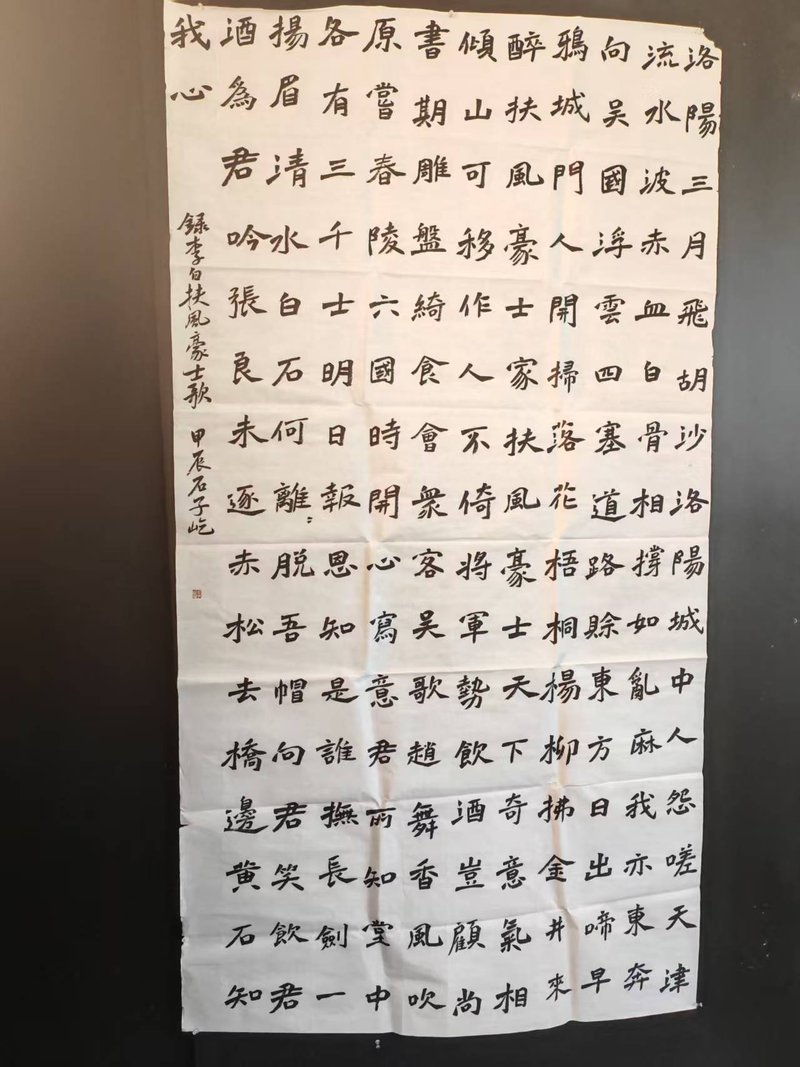 洛陽三月飛胡沙洛陽城中人怨嗟天津
流水波赤血白骨相撐如亂麻我亦東奔
向吳國浮雲四塞道路賒東方日出啼早
鴉城門人開掃落花梧桐楊柳拂金井來
醉扶風豪士家扶風豪士天下奇意氣相
傾山可移作人不倚將軍勢飲酒豈顧尚
書期雕盤綺食會衆客吳歌趙舞香風吹
原嘗春陵六國時開心寫意君所知堂中
各有三千士明日報恩知是誰撫長劍一
揚眉清水白石何離〻脫吾帽向君笑飲君
酒爲君吟張良未逐赤松去橋邊黃石知
我心
録李白扶風豪士歌 甲辰石子屹